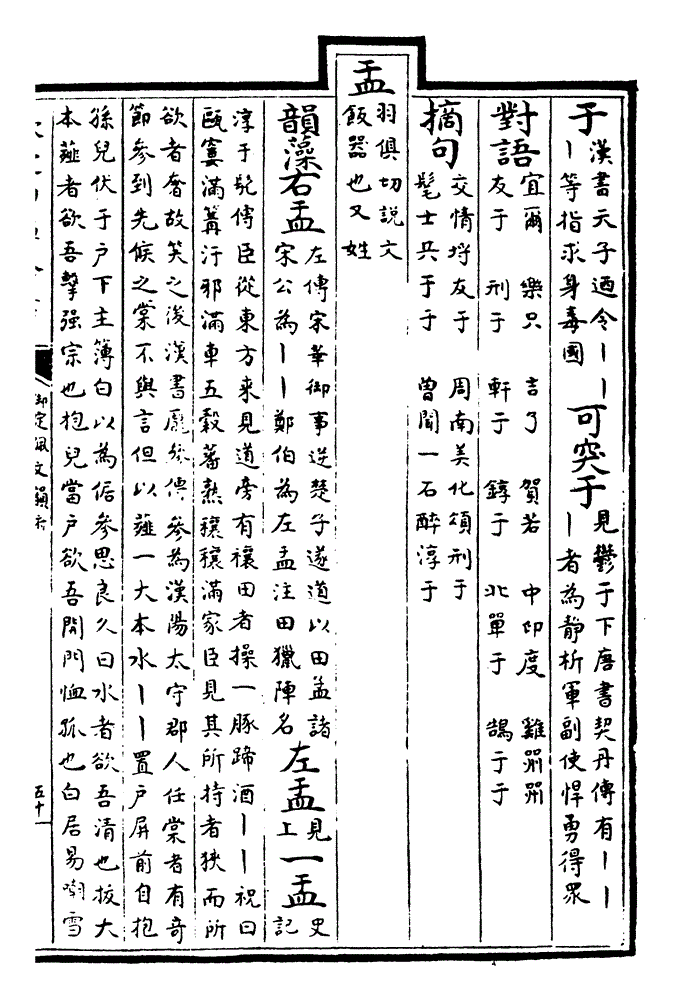 于漢書天子迺令丨丨
丨等指求身毒國
可突于見鬱于下唐書契丹傳有丨丨
丨者為靜析軍副使悍勇得眾
對語宜爾 樂只 言乃 賀若 中印度 雞喌喌
友于 刑于 軒于 錞于 北單于 鵠于于
摘句交情埒友于 周南美化頌刑于
髦士兵于于 曾聞一石醉淳于
盂羽俱切說文
飯器也又姓
韻藻右盂左傳宋華御事逆楚子遂道以田孟諸
宋公為丨丨鄭伯為左盂注田獵陣名
左盂見
上
一盂史
記
淳于髡傳臣從東方來見道旁有禳田者操一豚蹄酒丨丨祝曰
甌窶滿篝汙邪滿車五穀蕃熟穰穰滿家臣見其所持者狹而所
欲者奢故笑之後漢書龐參傳參為漢陽太守郡人任棠者有奇
節參到先候之棠不與言但以薤一大本水丨丨置戶屏前自抱
孫兒伏于戶下主簿白以為倨參思良久曰水者欲吾清也拔大
本薤者欲吾擊強宗也抱兒當戶欲吾開門恤孤也白居易嘲雪
御定佩文韻府
五十